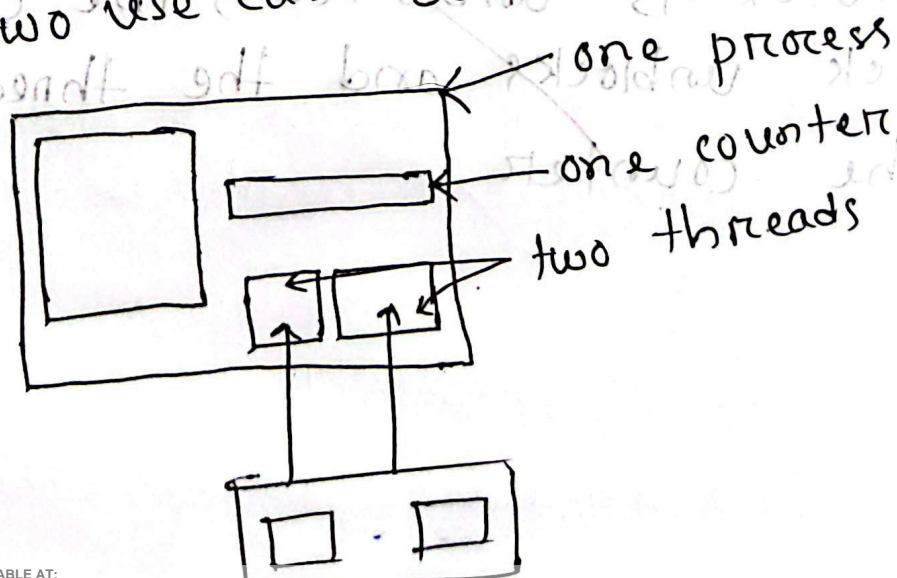 two use
one process
one counter
two threads
ABLE AT: